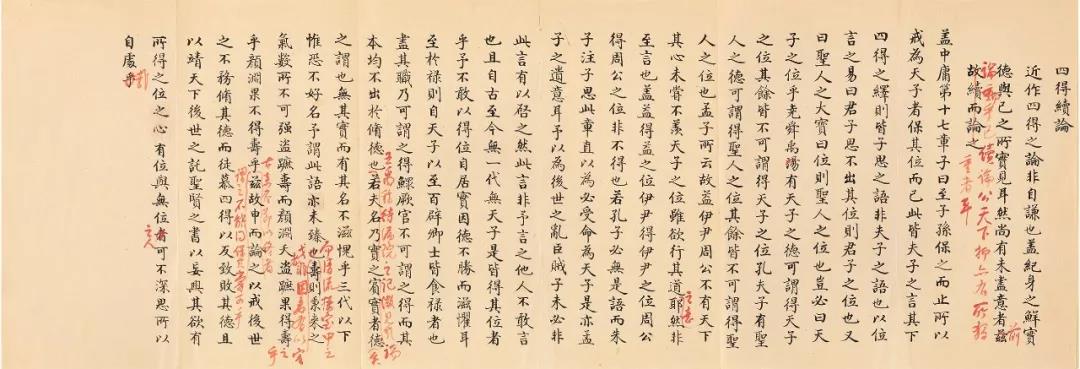 四得續論
近作四得之論非自謙也蓋紀身之鮮實
德與已之所實見耳然尚有未盡意者茲
故續而論之
蓋中庸第十七章子曰至子孫保之而止所以
戒為天子者保其位而已此皆夫子之言其下
四得之繹則皆子思之語非夫子之語也以位
言之易曰君子思不出其位則君子之位也又
曰聖人之大寶曰位則聖人之位也豈必曰天
子之位乎堯舜禹湯有天子之德可謂得天子
之位其餘皆不可謂得天子之位孔夫子有聖
人之德可謂得聖人之位其餘皆不可謂得聖
人之位也孟子所云故益伊尹周公不有天下
其心未嘗不羨天子之位雖欲行其道耶然非
至言也蓋益得益之位伊尹得伊尹之位周公
得周公之位非不得也若孔子必無是語而朱
子注子思此章直以為必受命為天子是亦孟
子之遺意耳予以為後世之亂臣賊子未必非
此言有以啓之然此言非予言之他人不敢言
也且自古至今無一代無天子是皆得其位者
乎予不敢以得位自居實因德不勝而滋懼耳
至於祿則自天子以至百辟卿士皆食祿者也
盡其職乃可謂之得鰥厥官不可謂之得而其
本均不出於脩德也若夫名乃實之賓實者德
之謂也無其實而有其名不滋愧乎三代以下
惟恐不好名予謂此語亦未臻也壽則稟來之
氣數所不可強盜蹠壽而顏淵夭盜蹠果得壽
乎顏淵果不得壽乎茲故申而論之以戒後世
之不務脩其德而徒慕四得以反致敗其德且
以靖天下後世之託聖賢之書以妄興其欲有
所得之位之心有位與無位者可不深思所以
自處乎